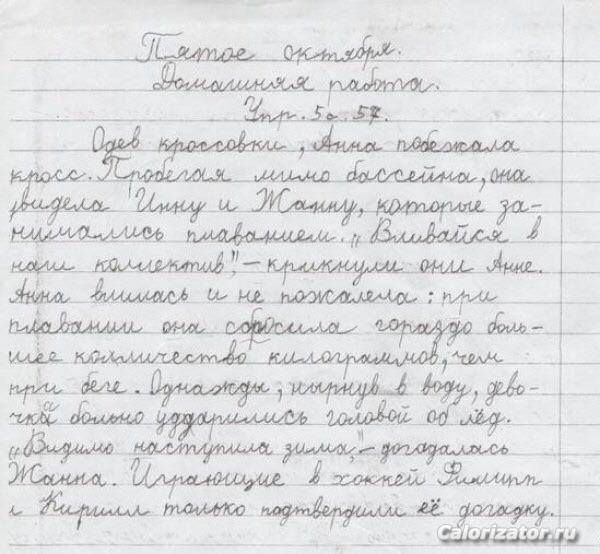 Пятое октября.
Домашняя работа.
Упр. 5 с. 57.
Одев кроссовки, Анна побежала
кросс. Пробегая мимо бассейна, она
увидела Инну и Жанну, которые за-
нимались плаванием. „Вливайся в
наш коллектив", – крикнули они Анне.
Анна влилась и не пожалела: при
плавании она сбросила гораздо боль-
шее количество килограммов, чем
при беге. Однажды, нырнув в воду, дево-
чка больно ударились головой об лёд.
„Видимо наступила зима," – догадалась
Жанна. Играющие в хоккей Филипп
и Кирилл только подтвердили её догадку.
Calorizator.ru